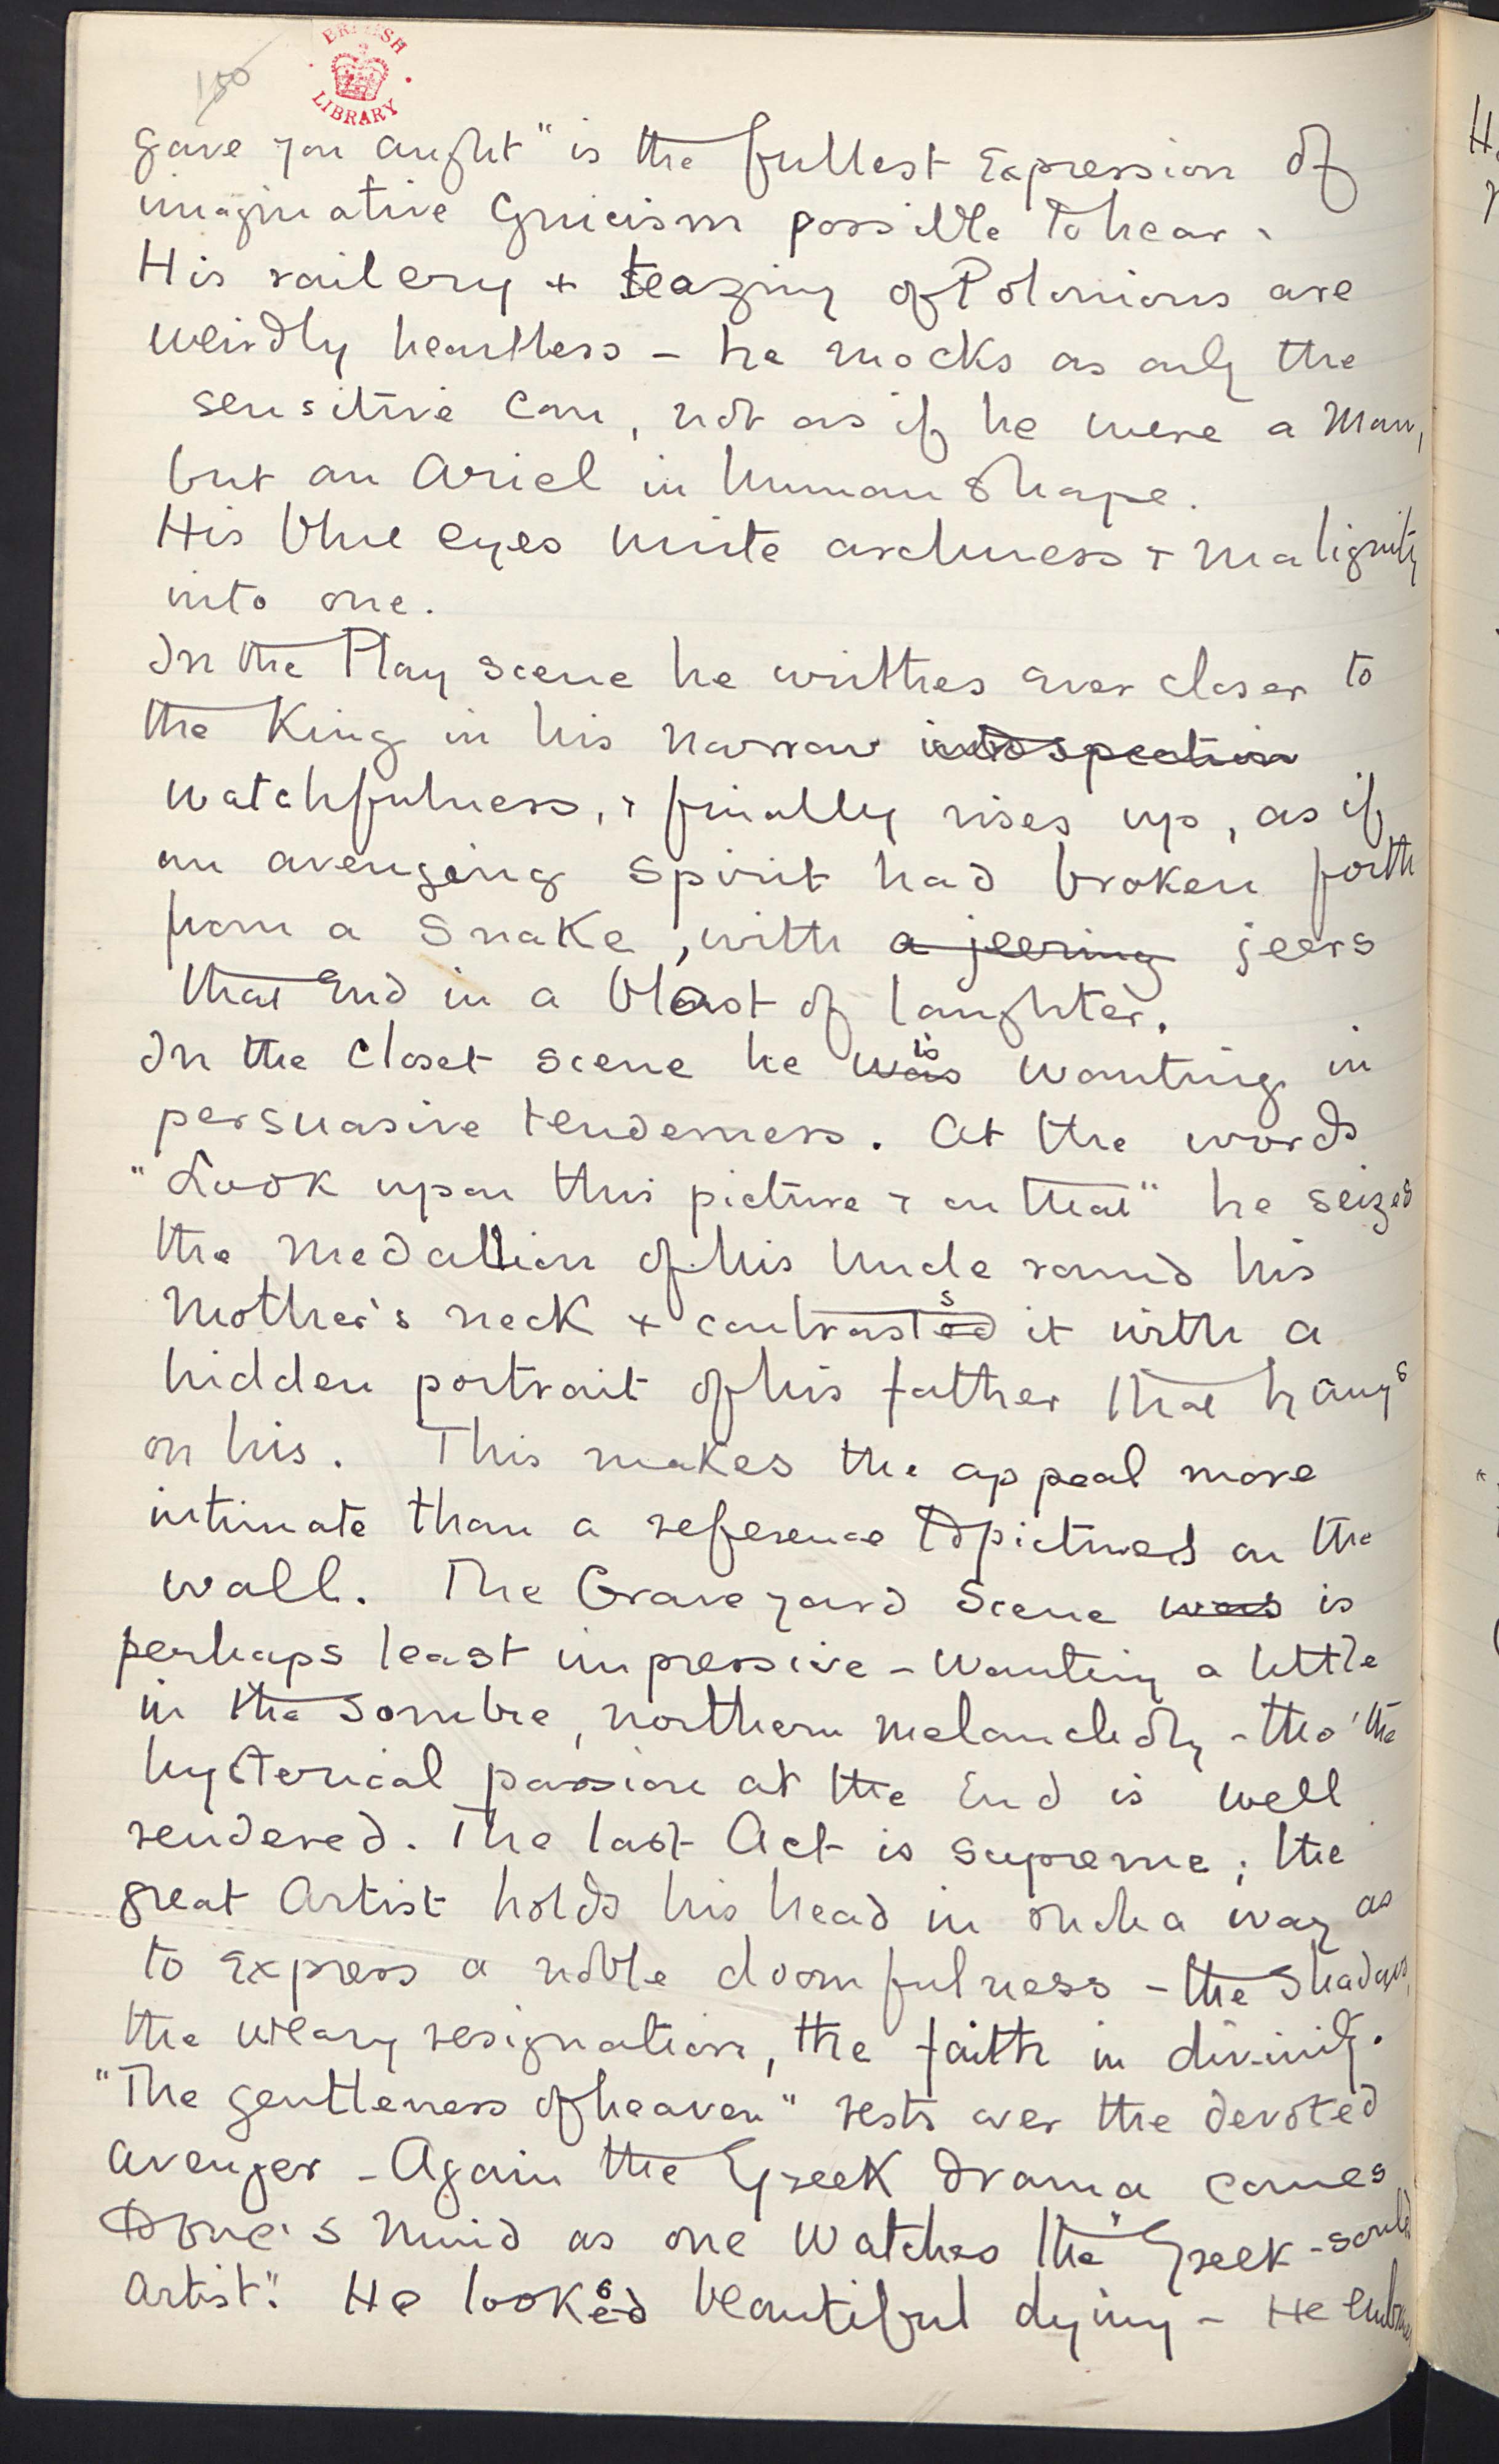 150
BRITISH LIBRARY
gave you aught" is the fullest Expression of
imaginative Cynicism possible to hear.
His railery + teazing of Polonious are
weirdly heartless - he mocks as only the
sensitive can, not as if he were a man,
but an Ariel in human shape.
His blue eyes unite archness + malignity
into one.
In the Play scene he writhes ever closer to
the King in his narrow introspection
watchfulness, + finally rises up, as if
an avenging spirit had broken forth
from a Snake, with a jeering jeers
that End in a blast of laughter.
In the Closet scene he was is wanting in
persuasive tenderness. At the words
"Look upon this picture + on that" he seizes
the medallion of his Uncle round his
Mother's neck + contrasted s it with a
hidden portrait of his father that hangs
on his. This makes the appeal more
intimate than a reference to pictures on the
wall. The Graveyard Scene was is
perhaps least impressive - wanting a little
in the sombre, northern melancholy - tho' the
hysterical passion at the End is well
rendered. The last Act is supreme; the
great Artist holds his head in such a way as
to Express a noble doomfulness - the shadows,
the weary resignation, the faith in divinity.
"The gentleness of heaven" rests over the devoted
avenger - Again the Greek drama comes
to one's mind as one watches the "Greek-souled
artist". He looked s beautiful dying - He